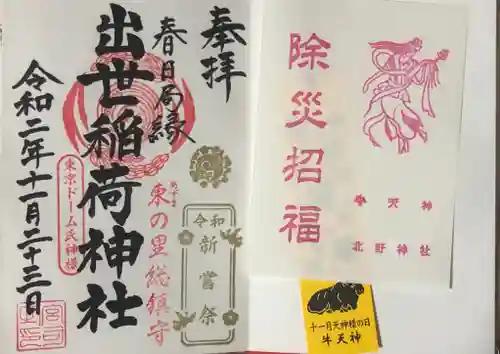 奉拝
春日局縁
出世稲荷神社
令和二年十一月二十三日
東京ドーム氏神様
東の里総鎮守
令和
新嘗祭
除災招福
牛天神
北野神社
十一月天神様の日
牛天神